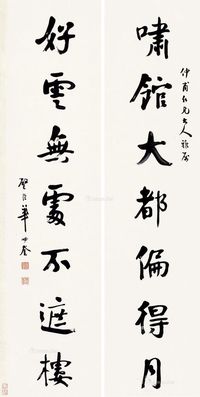 啸館大都偏得月
仲甫仁兄大人雅属
好雲無處不遮樓
華世奎